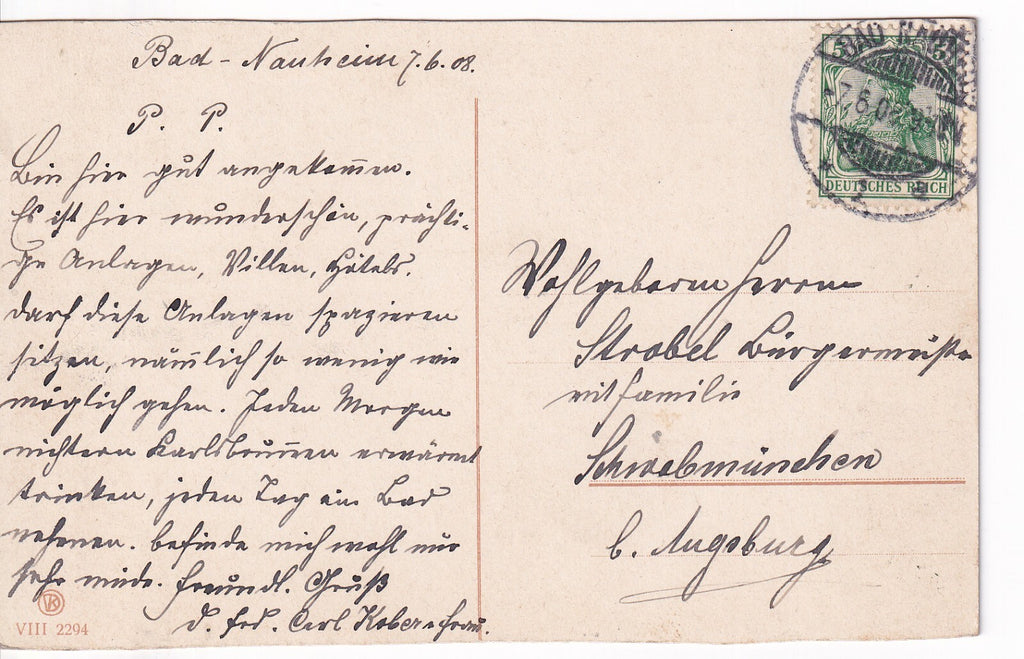 Bad-Nauheim 7.6.08.
P. P.
Bin hier gut angekom̄en.
Es ist hier wunderschön, prächti-
ge Anlagen, Villen, Hotels.
darf diese Anlagen spazieren
sitzen, näm̄lich so wenig wie
möglich gehen. Jeden Morgen
nüchtern Karlsbrun̄en erwärmt
trinken, jeden Tag ein Bad
nehmen. befinde mich wohl nur
sehr müde. freundl. Gruß
Carl
VIII 2294
BAD NAUH
7.6.08
DEUTSCHES REICH
Wohlgeborn Herrn
Strobel Bürgermeister
mit Familie
Schwabmünchen
b. Augsburg